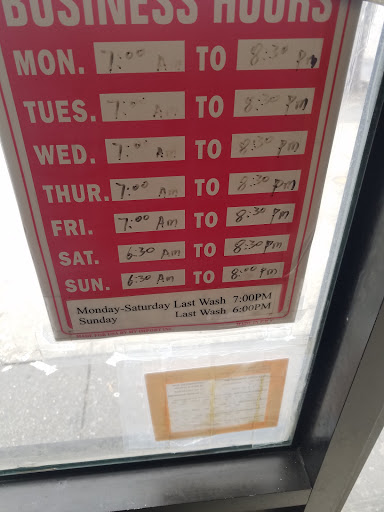 BUSINESS HOURS
MON. 7:00 AM TO 8:30 PM
TUES. 7:00 AM TO 8:30 PM
WED. 7:00 AM TO 8:30 PM
THUR. 7:00 AM TO 8:30 PM
FRI. 7:00 AM TO 8:30 PM
SAT. 6:30 AM TO 8:30 PM
SUN. 6:30 AM TO 8:00 PM
Monday-Saturday Last Wash 7:00PM
Sunday Last Wash 6:00PM